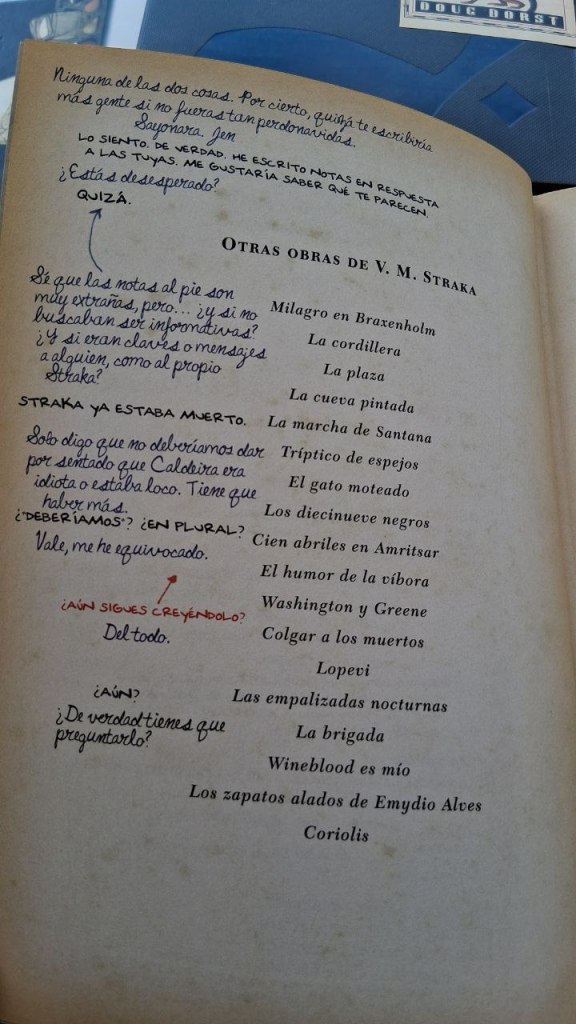 DOUG DORST
Ninguna de las dos cosas. Por cierto, quizá te escribiría
más gente si no fueras tan perdonavidas.
Sayonara. Jen
LO SIENTO. DE VERDAD. HE ESCRITO NOTAS EN RESPUESTA
A LAS TUYAS. ME GUSTARÍA SABER QUÉ TE PARECEN.
¿Estás desesperado?
QUIZÁ.
OTRAS OBRAS DE V. M. STRAKA
Sé que las notas al pie son
muy extrañas, pero... ¿y si no
buscaban ser informativas?
¿Y si eran claves o mensajes
a alguien, como al propio
Straka?
STRAKA YA ESTABA MUERTO.
Solo digo que no deberíamos dar
por sentado que Caldeira era
idiota o estaba loco. Tiene que
haber más.
¿"DEBERÍAMOS"? ¿EN PLURAL?
Vale, me he equivocado.
¿AÚN SIGUES CREYÉNDOLO?
Del todo.
¿AÚN?
¿De verdad tienes que
preguntarlo?
Milagro en Braxenholm
La cordillera
La plaza
La cueva pintada
La marcha de Santana
Tríptico de espejos
El gato moteado
Los diecinueve negros
Cien abriles en Amritsar
El humor de la víbora
Washington y Greene
Colgar a los muertos
Lopevi
Las empalizadas nocturnas
La brigada
Wineblood es mío
Los zapatos alados de Emydio Alves
Coriolis